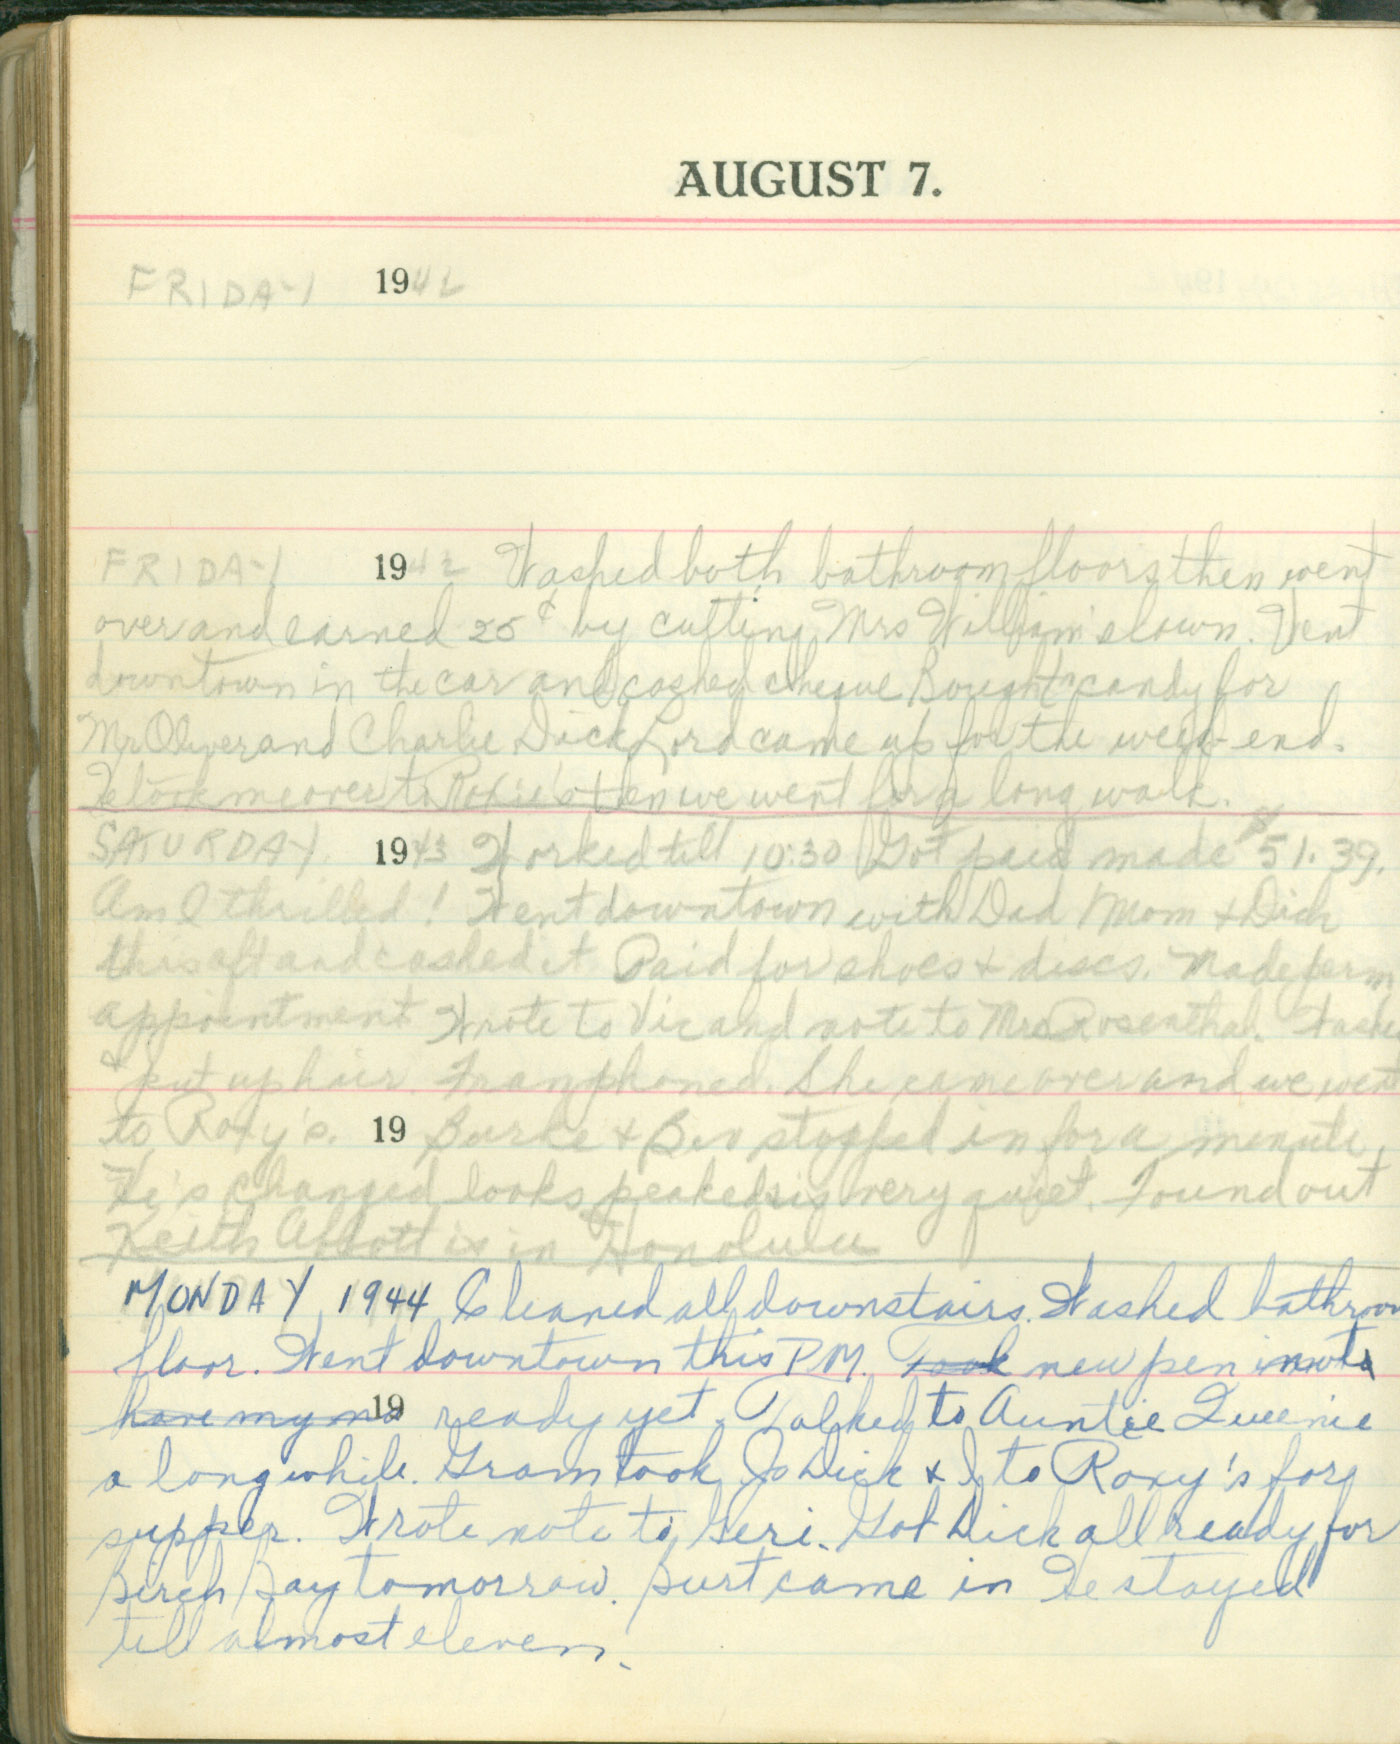 AUGUST 7.
FRIDAY 1942
FRIDAY 1942 Washed both bathroom floors then went
over and earned 25¢ by cutting Mrs William's lawn. Went
downtown in the car and cashed cheque Bought candy for
Mr Oliver and Charlie Dick Lord came up for the week-end.
He took me over to Roxie's then we went for a long walk.
SATURDAY 1943 Worked till 10:30 Got paid made $51.39.
Am I thrilled! Went downtown with Dad Mom & Dick
this aft and cashed it Paid for shoes & discs. Made perm
appointment Wrote to Vic and note to Mrs Rosenthal. Washed
& put up hair. Fran phoned. She came over and we went
to Roxy's. 19 Burke & Bev stopped in for a minute
He's changed looks peaked is very quiet. Found out
Keith Abbott is in Honolulu
MONDAY 1944 Cleaned all downstairs. Washed bathroom
floor. Went downtown this P.M. Took new pen
have my no 19 ready yet. Talked to Auntie Queenie
a long while. Gram took Jo Dick & I to Roxy's for
supper. Wrote note to Geri. Got Dick all ready for
Birch Bay tomorrow. Burt came in He stayed
till almost eleven.